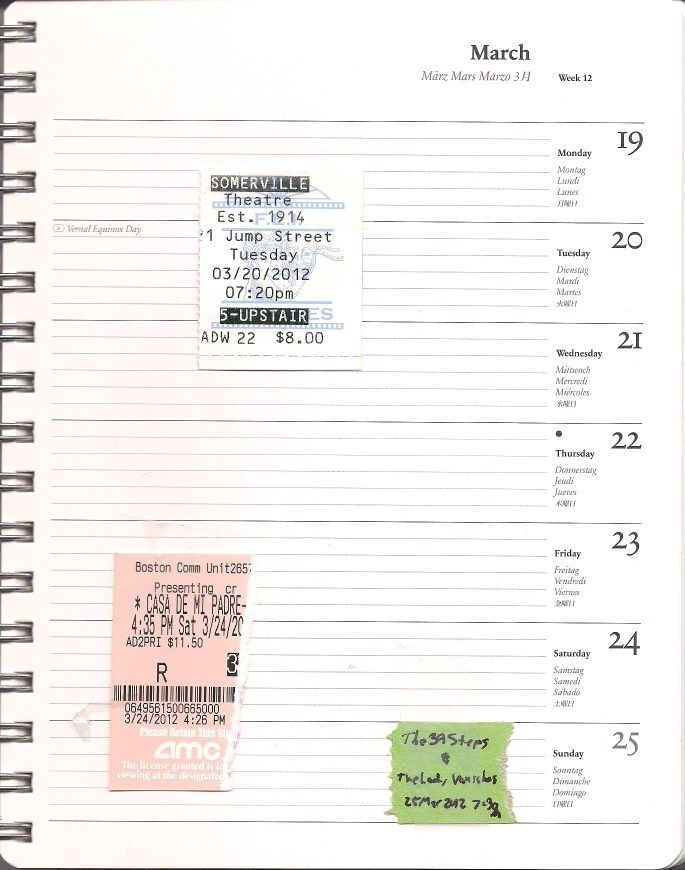 March
März Mars Marzo 3月 Week 12
19
Monday
Montag
Lundi
Lunes
月曜日
Vernal Equinox Day
20
Tuesday
Dienstag
Mardi
Martes
火曜日
SOMERVILLE
Theatre
Est. 1914
1 Jump Street
Tuesday
03/20/2012
07:20pm
5-UPSTAIR
ADW 22 $8.00
21
Wednesday
Mittwoch
Mercredi
Miércoles
水曜日
22
Thursday
Donnerstag
Jeudi
Jueves
木曜日
23
Friday
Freitag
Vendredi
Viernes
金曜日
Boston Comm Unit2657
Presenting cr
* CASA DE MI PADRE-
4:35 PM Sat 3/24/20
AD2PRI $11.50
R 3
0649561500665000
3/24/2012 4:26 PM
Please Retain This Stu
amc
The license granted is
viewing at the designated
24
Saturday
Samstag
Samedi
Sábado
土曜日
25
Sunday
Sonntag
Dimanche
Domingo
日曜日
The 39 Steps
&
The Lady Vanishes
25 Mar 2012 7:30